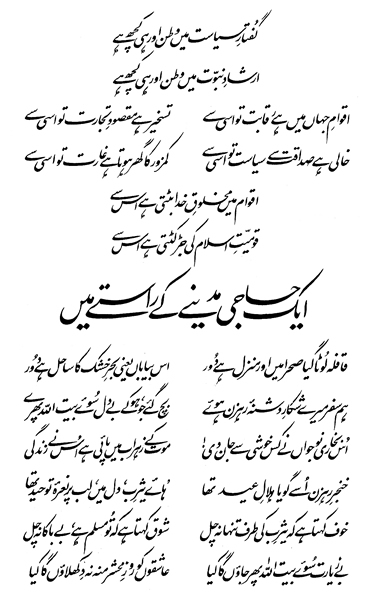 گفتارِ سیاست میں وطن اور ہی کچھ ہے
ارشادِ نبوّت میں وطن اور ہی کچھ ہے
اقوامِ جہاں میں ہے رقابت تو اسی سے تسخیر ہے مقصودِ تجارت تو اسی سے
خالی ہے صداقت سے سیاست تو اسی سے کمزور کا گھر ہوتا ہے غارت تو اسی سے
اقوام میں مخلوقِ خدا بٹتی ہے اس سے
قومیّتِ اسلام کی جڑ کٹتی ہے اس سے
ایک حاجی مدینے کے راستے میں
قافلہ لُوٹا گیا صحرا میں اور منزل ہے دُور اس بیاباں یعنی بحرِ خشک کا ساحل ہے دُور
ہم سفر میرے شکارِ دشنۂ رہزن ہوئے بچ گئے جو ہو کے بے دل سُوئے بیت اللہ پھرے
اُس بخاری نوجواں نے کس خوشی سے جان دی! موت کے زہراب میں پائی ہے اُس نے زندگی
خنجرِ رہزن اُسے گویا ہلالِ عید تھا ہائے یثرب دل میں، لب پر نعرۂ توحید تھا
خوف کہتا ہے کہ یثرب کی طرف تنہا نہ چل شوق کہتا ہے کہ تُو مسلم ہے بے باکانہ چل
بے زیارت سُوئے بیت اللہ پھر جاؤں گا کیا عاشقوں کو روزِ محشر منہ نہ دکھلاؤں گا کیا